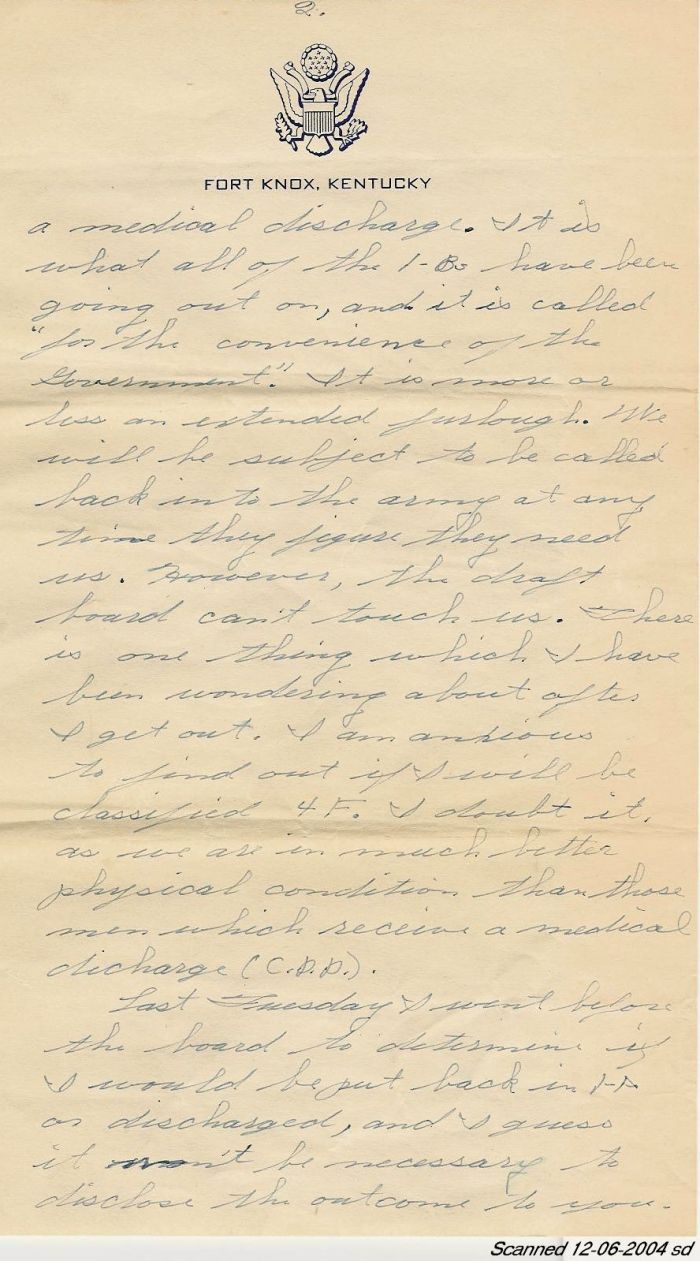 2.
FORT KNOX, KENTUCKY
a medical discharge. It is
what all of the 1-Bs have been
going out on, and it is called
"for the convenience of the
Government." It is more or
less an extended furlough. We
will be subject to be called
back into the army at any
time they figure they need
us. However, the draft
board can't touch us. There
is one thing which I have
been wondering about after
I get out. I am anxious
to find out if I will be
classified 4F. I doubt it,
as we are in much better
physical condition than those
men which receive a medical
dicharge (C.D.D.).
Last Tuesday I went before
the board to determine if
I would be put back in 1-A
or discharged, and I guess
it won't be necessary to
disclose the outcome to you.
Scanned 12-06-2004 sd